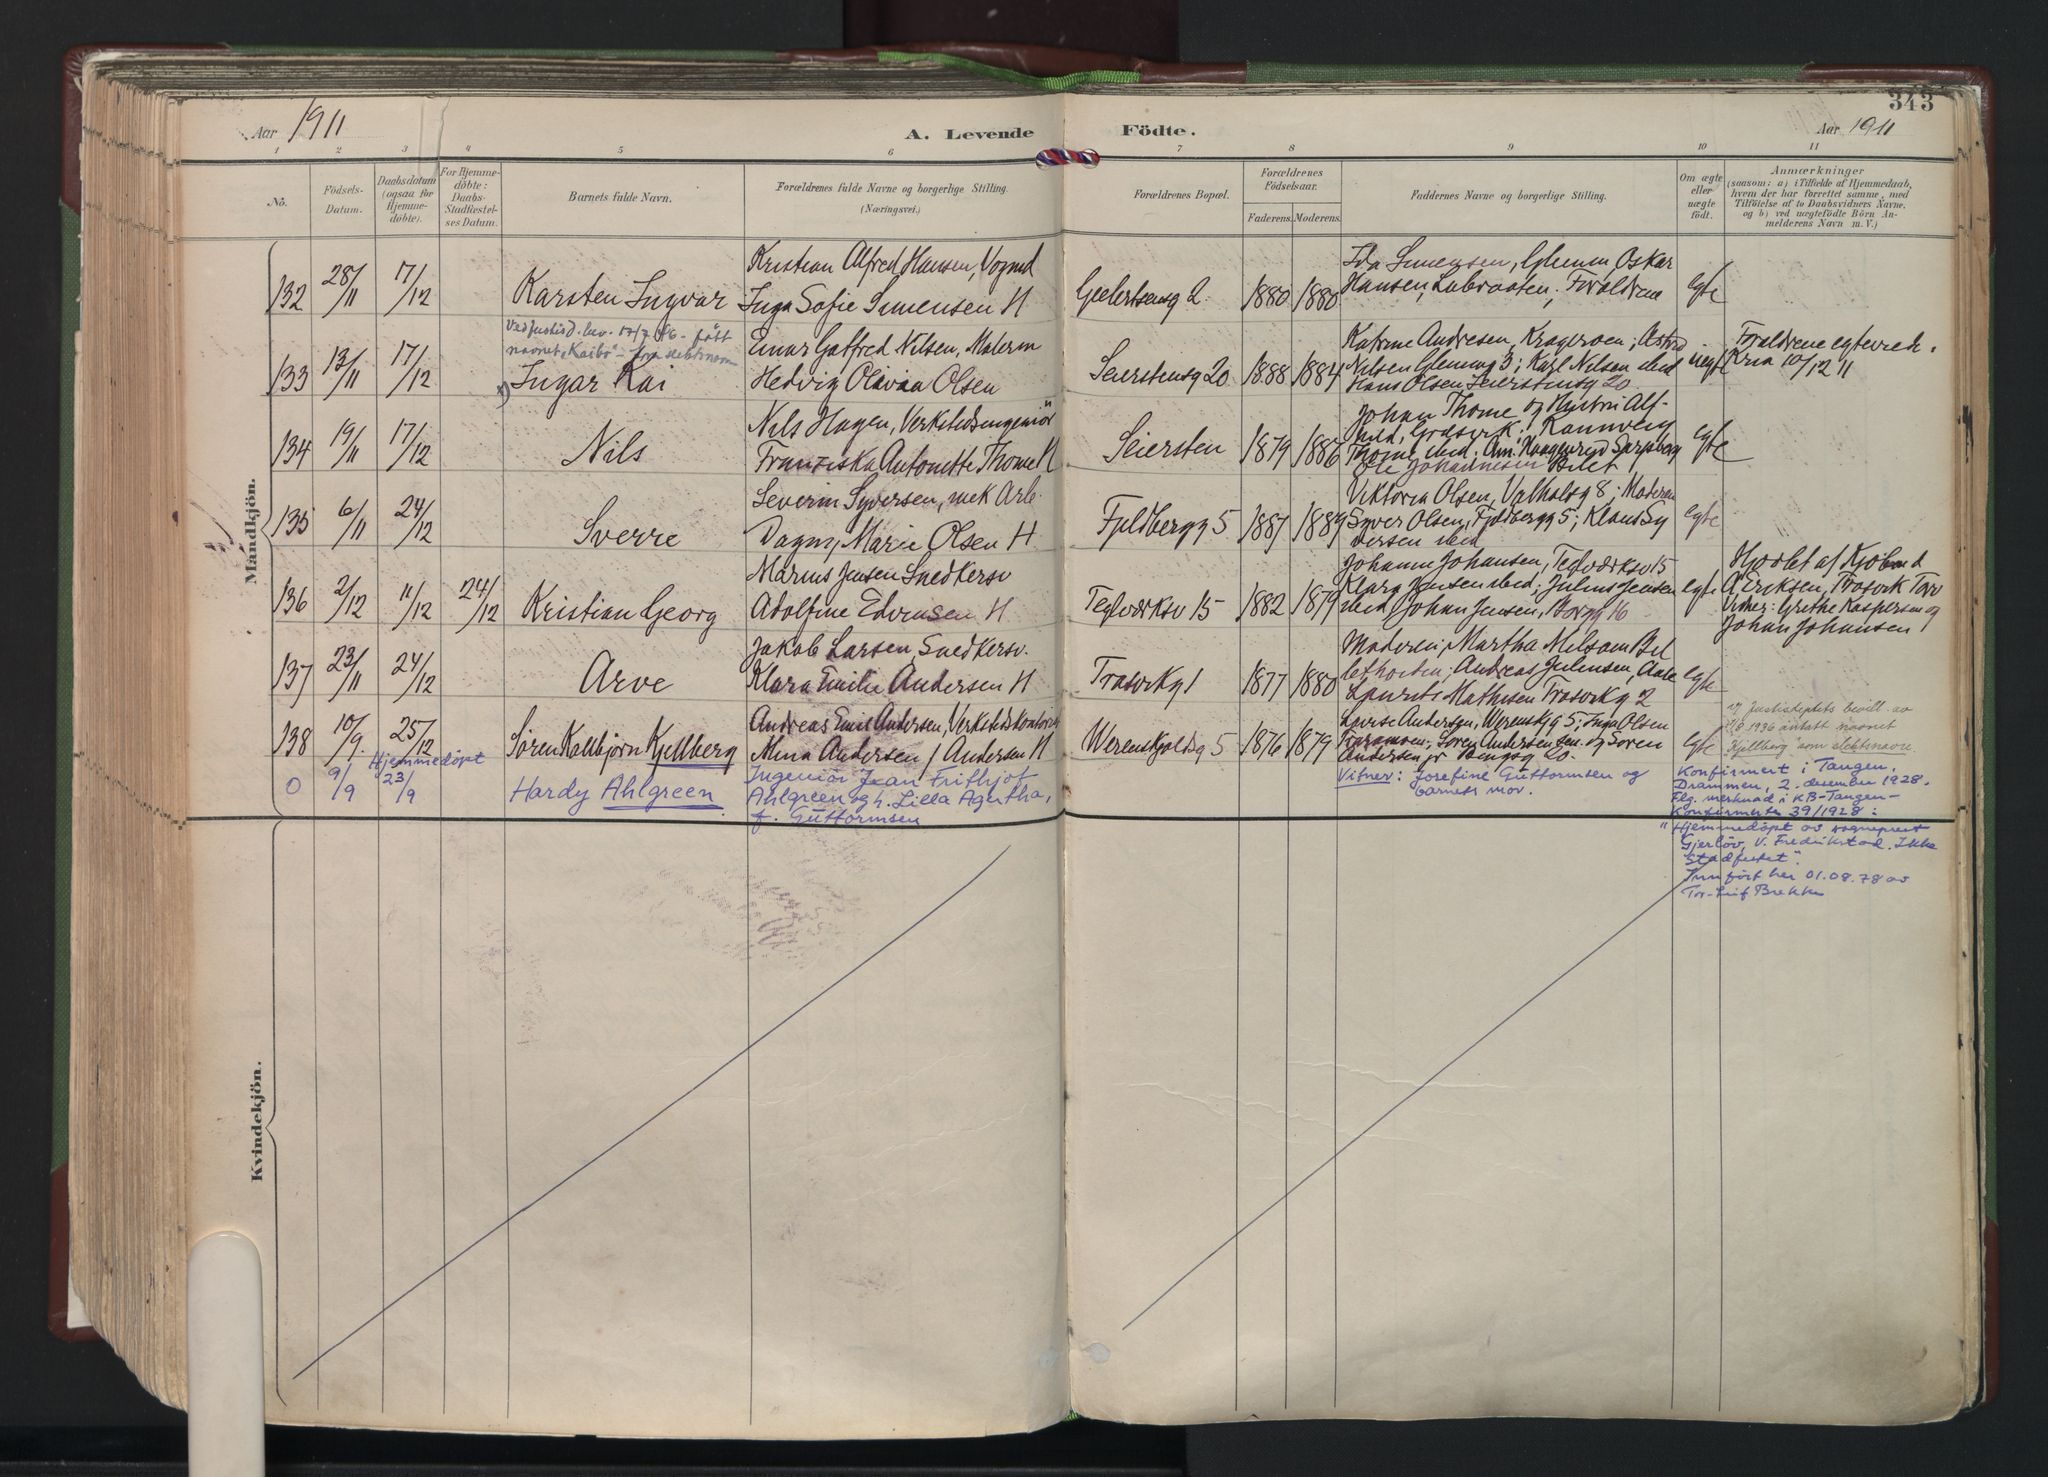 343
Aar 1911
A. Levende Födte.
Aar 1911
1 2 3 4 5 6 7 8 9 10 11
No.
Födsels-Datum.
Daabsdatum (ogsaa for Hjemme-döbte).
For Hjemme-döbte: Daabs-Stadfæstel-ses Datum.
Barnets fulde Navn.
Forældrenes fulde Navne og borgerlige Stilling.
(Næringsvei.)
Forældrenes Bopæl.
Forældrenes Födselsaar.
Faderens. Moderens.
Faddernes Navne og borgerlige Stilling.
Om ægte eller uægte födt.
Anmærkninger
(saasom: a) i Tilfælde af Hjemmedaab,
hvem der har forrettet samme, med
Tilföielse af to Daabsvidners Navne,
og b) ved uægtefödte Börn An-
melderens Navn m. V.)
Mandkjön.
132 28/11 17/12 Karsten Ingvar
Kristian Alfred Hansen, Vognmd
Inga Sofie Simensen H
1880 1880
Ida Simensen, Glemm Oskar
Hansen, Labraaten; Forældrene
egte
133 13/11 17/12
navnet "Kaibo" - fra slektnavn
x) Ingar Kai
Einar Gotfred Nilsen, Malersv
Hedvig Olivia Olsen
Seierstensg 20 1888 1884
Katrine Andresen, Krageroen; Astrid
Nilsen Glemmg 3; Karl Nilsen ibid
Hans Olsen Seierstensg 20
uegte
Forældrene egteviede
Kria 10/12 11
134 19/11 17/12 Nils
Nils Hagen, Verkstedsingeniör
Franziska Antonette Thome H
Seiersten 1879 1886
Johan Thome og Hustru Alf-
hild, Greåsvik; Rannveig
Thome, ibid. Am. Haagenrud Sarpsborg
Ole Johannesen Bilet
egte
135 6/11 24/12 Sverre
Severin Syversen, mek Arb.
Dagny Marie Olsen H
Fjeldbergg 5 1887 1889
Viktoria Olsen, Valhalsg 8; Moderen
Syver Olsen, Fjeldbergg 5; Klaus Sy
versen ibid
egte
136 2/12 11/12 24/12 Kristian Georg
Marius Jensen Snedkersv
Adolfine Edvinsen H
Teglverksv 15 1882 1879
Johanne Johansen, Teglværksv 15
Klara Jensen ibid; Julius Jensen
ibid Johan Jensen, Borgg 16
egte
Hjdöbt af Kjöbmd
A Eriksen, Trosvik Torv
Vidner: Grethe Kaspersen og
Johan Johansen
137 23/11 24/12 Arve
Jakob Larsen, Snedkersv.
Klara Emilie Andersen H
Trosvikg 1 1877 1880
Moderen; Martha Nilsen Bil
Laurits Mathisen Trosvikg 2
egte
138 10/9. 25/12 Sören Kallbjörn Kjellberg
Andreas Emil Andersen, Verkstedskontorist
Alma Andersen f Andersen H
Werenskjoldsg 5 1876 1879
Lovise Andersen, Werensdg 5; Inga Olsen
Traraveien; Sören Andersen sen. og Sören
Andersen jr Bengsg 20.
egte
v/ Justisdeptets bevill. av
1/8 1936 antatt navnet
"Kjellberg" som slektnavn.
0 9/9 Hjemmedöpt 23/9
Hardy Ahlgreen
Ingeniör Jean Frithjof
Ahlgreen og h. Lilla Agatha,
f. Guttormsen
Vitner: Josefine Guttormsen og
barnets mor.
Konfirmert i Tangen,
Drammen, 2. desember 1928.
Flg. merknad i KB-Tangen-
Konfirmerte 39/1928:
"Hjemmedöpt av sogneprest
Gjerlöv, V. Fredrikstad. Ikke
stadfestet".
Innfört her 01.08.78 av
Tor-Leif Brekke
Kvindekjön.